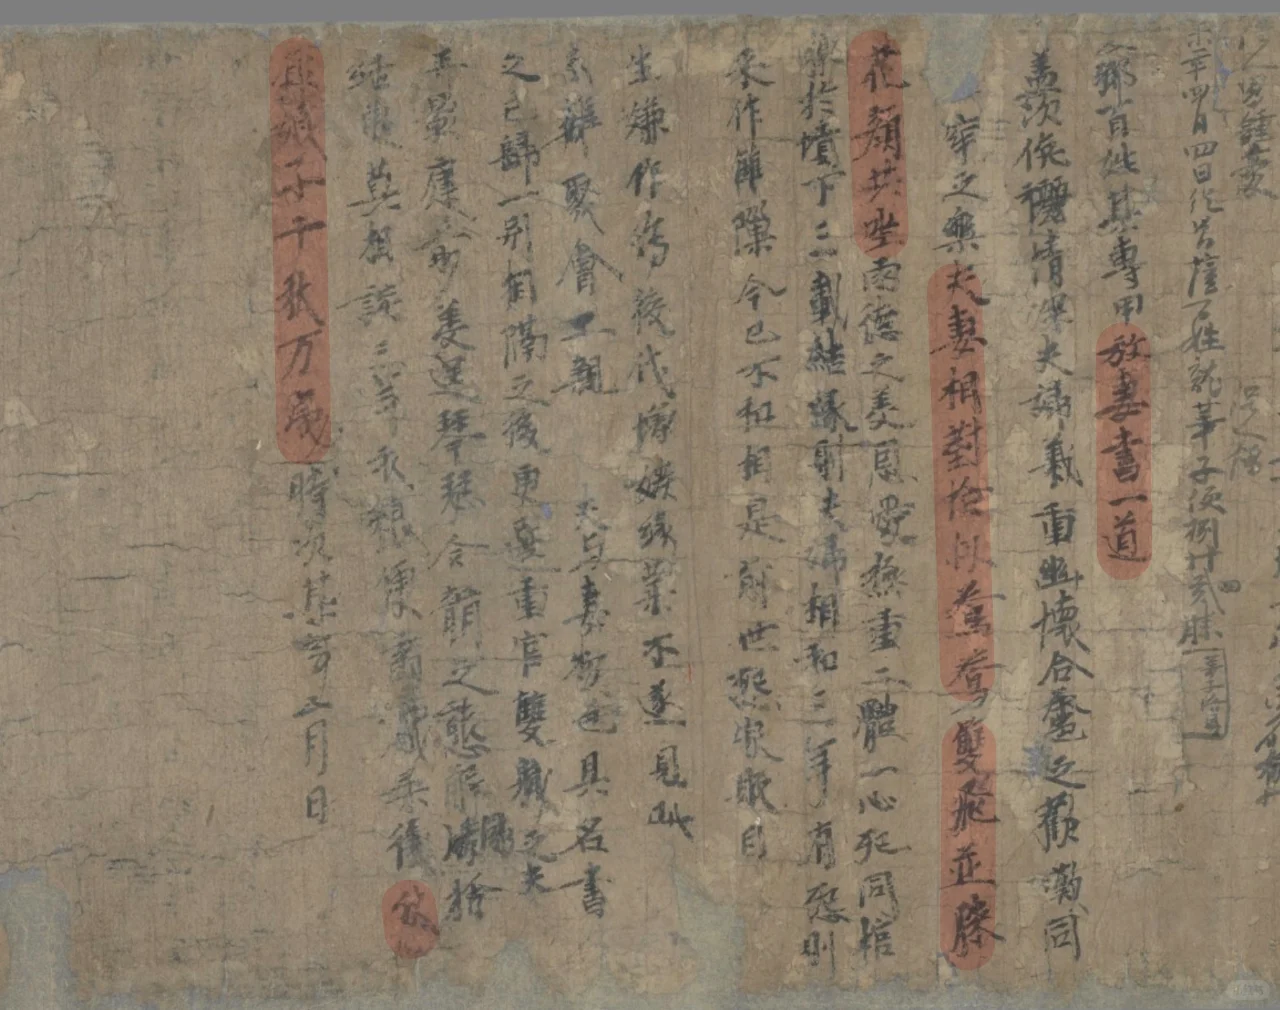 年四月四日
鄉百姓某專甲放妻書一道
蓋伉儷情深夫婦義重幽懷合卺之歡歎同
牢之樂夫妻相對恰似鴛鴦雙飛並膝
花顏共坐兩德之美恩愛極重二體一心死同棺
槨於墳下三載結緣則夫婦相和三年有怨則
來作讎隟今已不和相是前世怨家眅目
生嫌作為後代增嫉緣業不遂見此
分離聚會二親夫与妻物色具名書
之已歸一別相隔之後更選重官雙職之夫
弄影庭前美逞琴瑟合韻之態解捨
結更莫相談三年衣糧便獻柔儀伏
願娘子千秋万歲時次某年月日